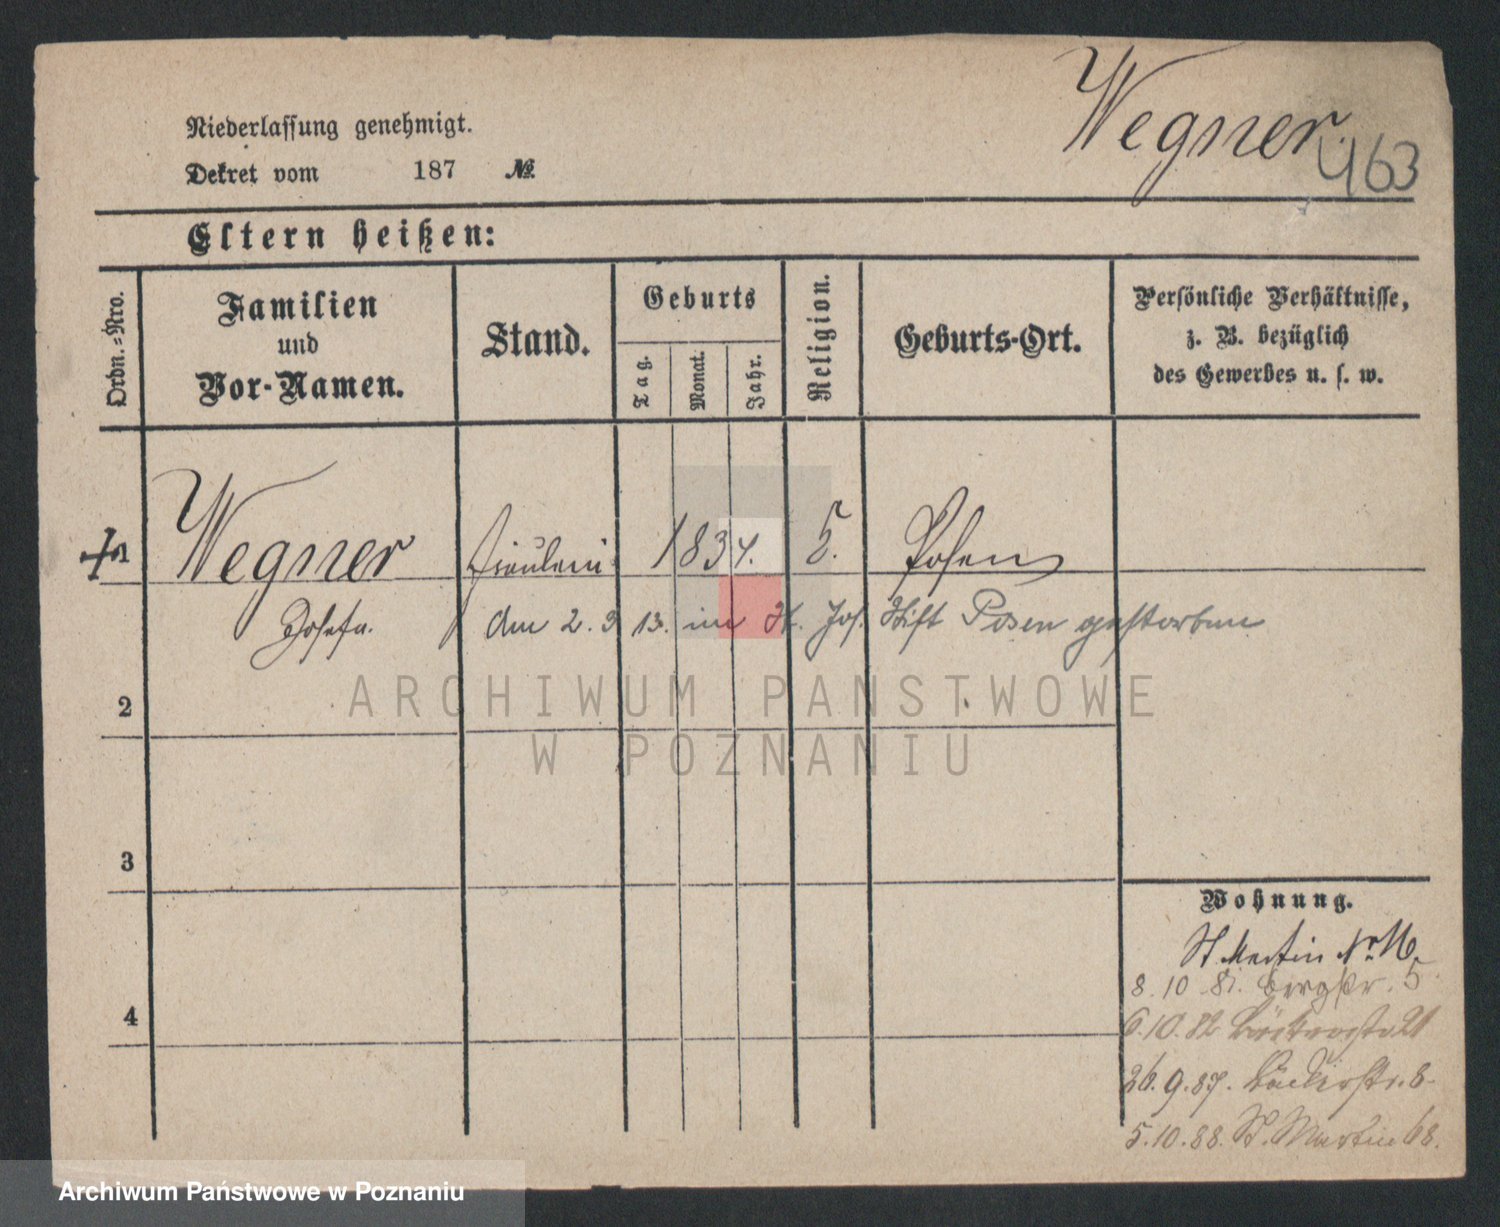 Wegner.
463
Niederlassung genehmigt.
Dekret vom 187 №
Eltern heißen:
Ordn.-Nro.
Familien
und
Vor-Namen.
Stand.
Geburts
Tag.
Monat.
Jahr.
Religion.
Geburts-Ort.
Persönliche Verhältnisse,
z. B. bezüglich
des Gewerbes u. s. w.
+ 1 Wegner Fräulein 1834. Posen
Josefa. den 2. 3 13. im St. Jos. Stift Posen gestorben
ARCHIWUM PANSTWOWE
W POZNANIU
2
3
4
Wohnung.
St Martin Nr 16.
8. 10 81. Bergstr. 5
6. 10. 82 21
26. 9. 87. Bäckerstr. 8.
5. 10. 88. St. Martin 68.
Archiwum Państwowe w Poznaniu